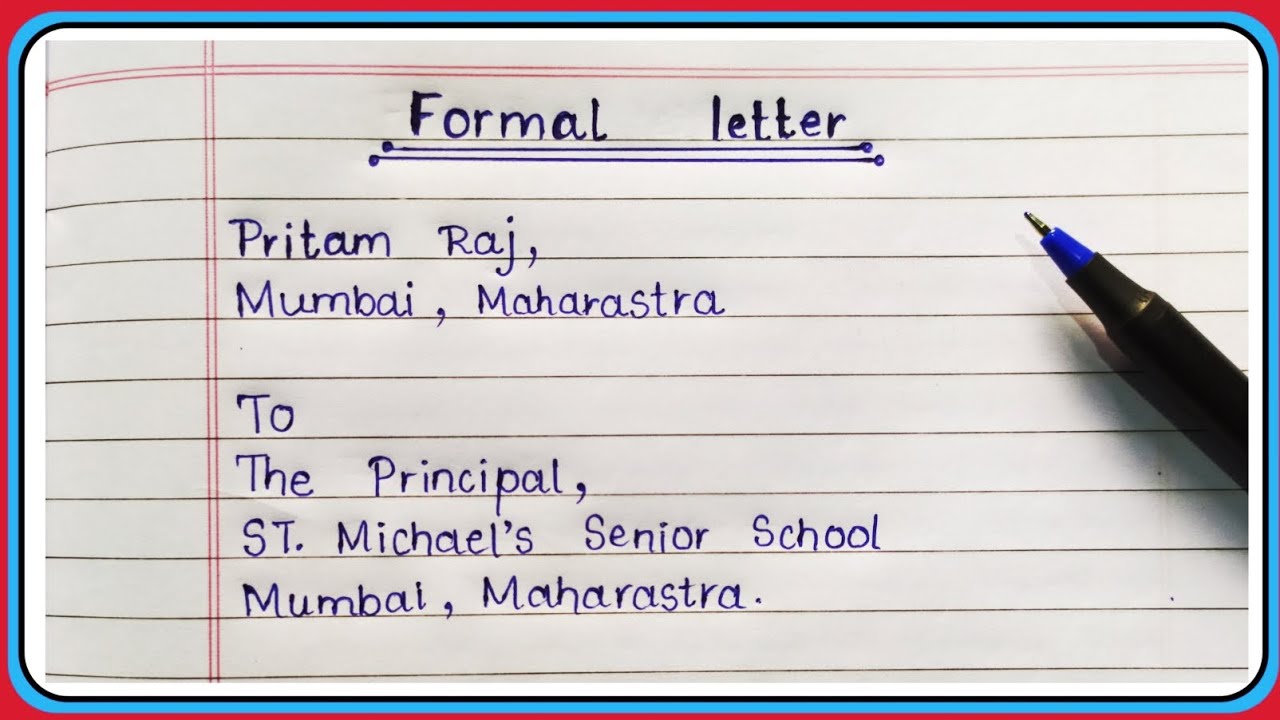 Formal letter
Pritam Raj,
Mumbai, Maharastra
To
The Principal,
ST. Michael's Senior School
Mumbai, Maharastra.